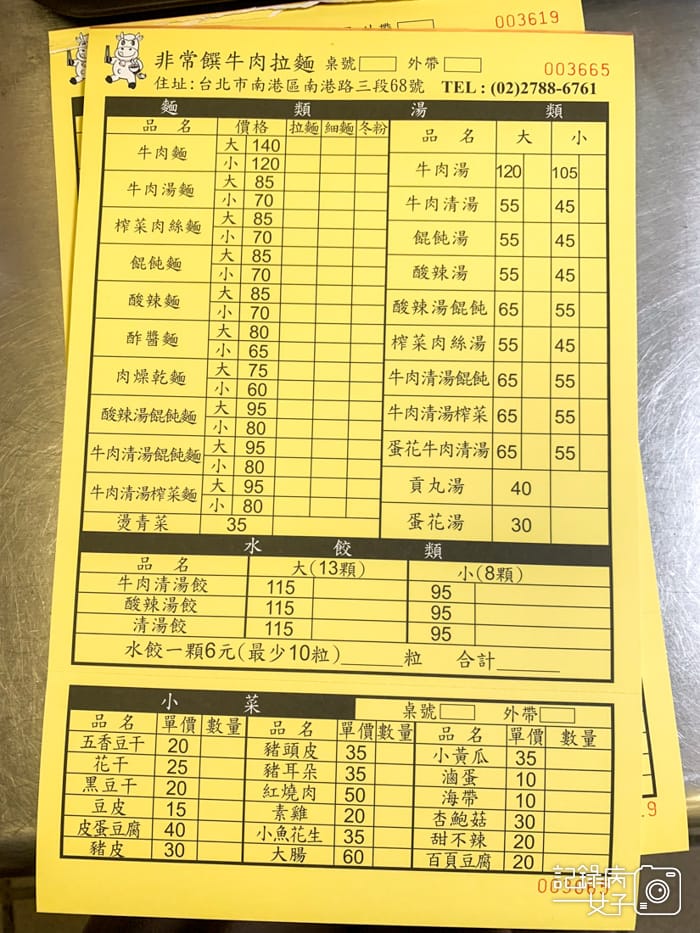 003619
外帶
003665
非常饌牛肉拉麵 桌號 外帶
住址:台北市南港區南港路三段68號 TEL : (02)2788-6761
麵 類 湯 類
品 名 價格 拉麵 細麵 冬粉
牛肉麵 大 140
小 120
牛肉湯麵 大 85
小 70
榨菜肉絲麵 大 85
小 70
餛飩麵 大 85
小 70
酸辣麵 大 85
小 70
酢醬麵 大 80
小 65
肉燥乾麵 大 75
小 60
酸辣湯餛飩麵 大 95
小 80
牛肉清湯餛飩麵 大 95
小 80
牛肉清湯榨菜麵 大 95
小 80
燙青菜 35
品 名 大 小
牛肉湯 120 105
牛肉清湯 55 45
餛飩湯 55 45
酸辣湯 55 45
酸辣湯餛飩 65 55
榨菜肉絲湯 55 45
牛肉清湯餛飩 65 55
牛肉清湯榨菜 65 55
蛋花牛肉清湯 65 55
貢丸湯 40
蛋花湯 30
水 餃 類
品 名 大(13顆) 小(8顆)
牛肉清湯餃 115 95
酸辣湯餃 115 95
清湯餃 115 95
水餃一顆6元(最少10粒)______粒 合計______
小 菜 桌號 外帶
品 名 單價 數量 品 名 單價 數量 品 名 單價 數量
五香豆干 20 豬頭皮 35 小黃瓜 35
花干 25 豬耳朵 35 滷蛋 10
黑豆干 20 紅燒肉 50 海帶 10
豆皮 15 素雞 20 杏鮑菇 30
皮蛋豆腐 40 小魚花生 35 甜不辣 20
豬皮 30 大腸 60 百頁豆腐 20
003665
記錄病
女子